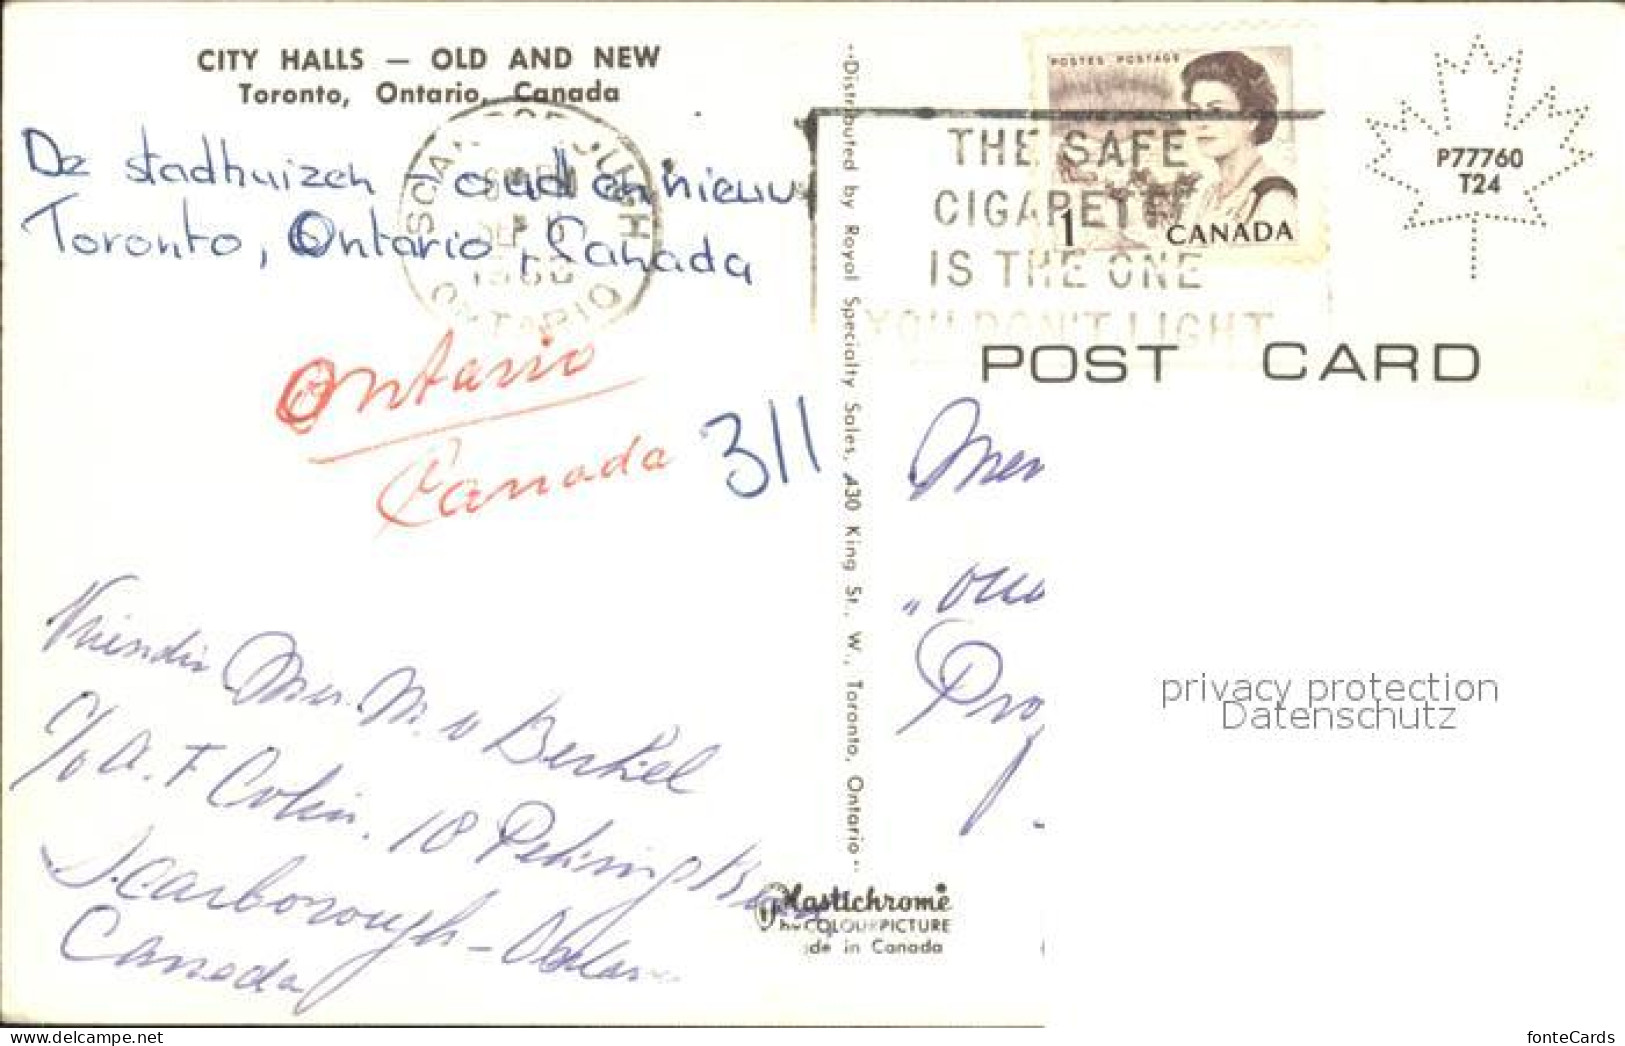 CITY HALLS — OLD AND NEW
Toronto, Ontario, Canada
De stadhuizen oud en nieuw
Toronto, Ontario, Canada
SCARBOROUGH
ONTARIO
Ontario
Canada
311
Mer M. v Berkel
c/o A. F Colin. 18
Scarborough -
Canada
--Distributed by Royal Specialty Sales, 430 King St., W., Toronto, Ontario--
Plastichrome
by COLOURPICTURE
de in Canada
POSTES POSTAGE
1 CANADA
THE SAFE
CIGARETTE
IS THE ONE
YOU DON'T LIGHT
P77760
T24
POST CARD
privacy protection
Datenschutz
www.delcampe.net
fonteCards